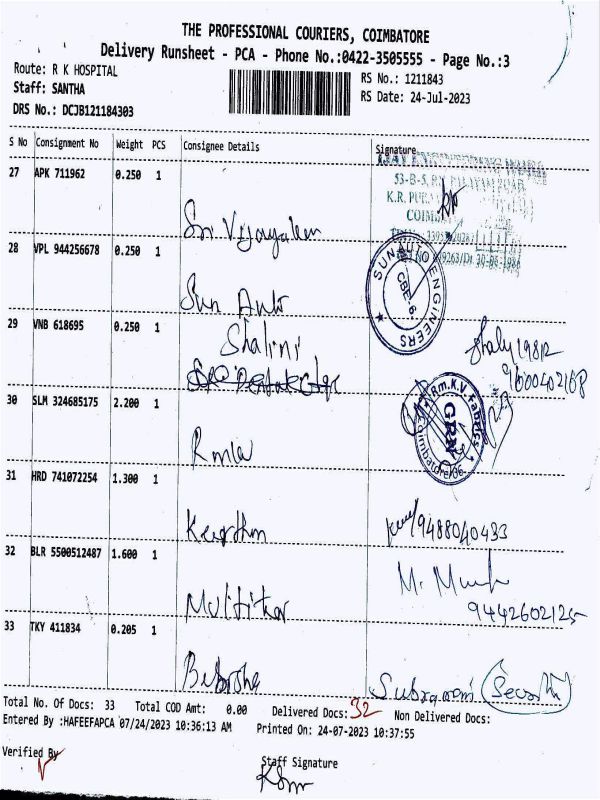 THE PROFESSIONAL COURIERS, COIMBATORE
Delivery Runsheet - PCA - Phone No.:0422-3505555 - Page No.:3
Route: R K HOSPITAL
Staff: SANTHA
DRS No.: DCJB121184303
RS No.: 1211843
RS Date: 24-Jul-2023
S No Consignment No Weight PCS Consignee Details Signature
27 APK 711962 0.250 1
53-B-5,
K.R. PU
COIM
Sri Vijayalem
28 VPL 944256678 0.250 1
SUN AUTO ENGINEERS
CBE-6
Sun Auto
29 VNB 618695 0.250 1
Shalini
9600402168
30 SLM 324685175 2.200 1
Rm.K.V. Fabrics
GRN
Coimbatore-36
Rmla
31 HRD 741072254 1.300 1
Keerthm
9488040433
32 BLR 5500512487 1.600 1
Multitkar
9442602125
33 TKY 411834 0.205 1
Subramani
Total No. Of Docs: 33 Total COD Amt: 0.00 Delivered Docs: 32 Non Delivered Docs:
Entered By :HAFEEFAPCA 07/24/2023 10:36:13 AM Printed On: 24-07-2023 10:37:55
Verified By
Staff Signature